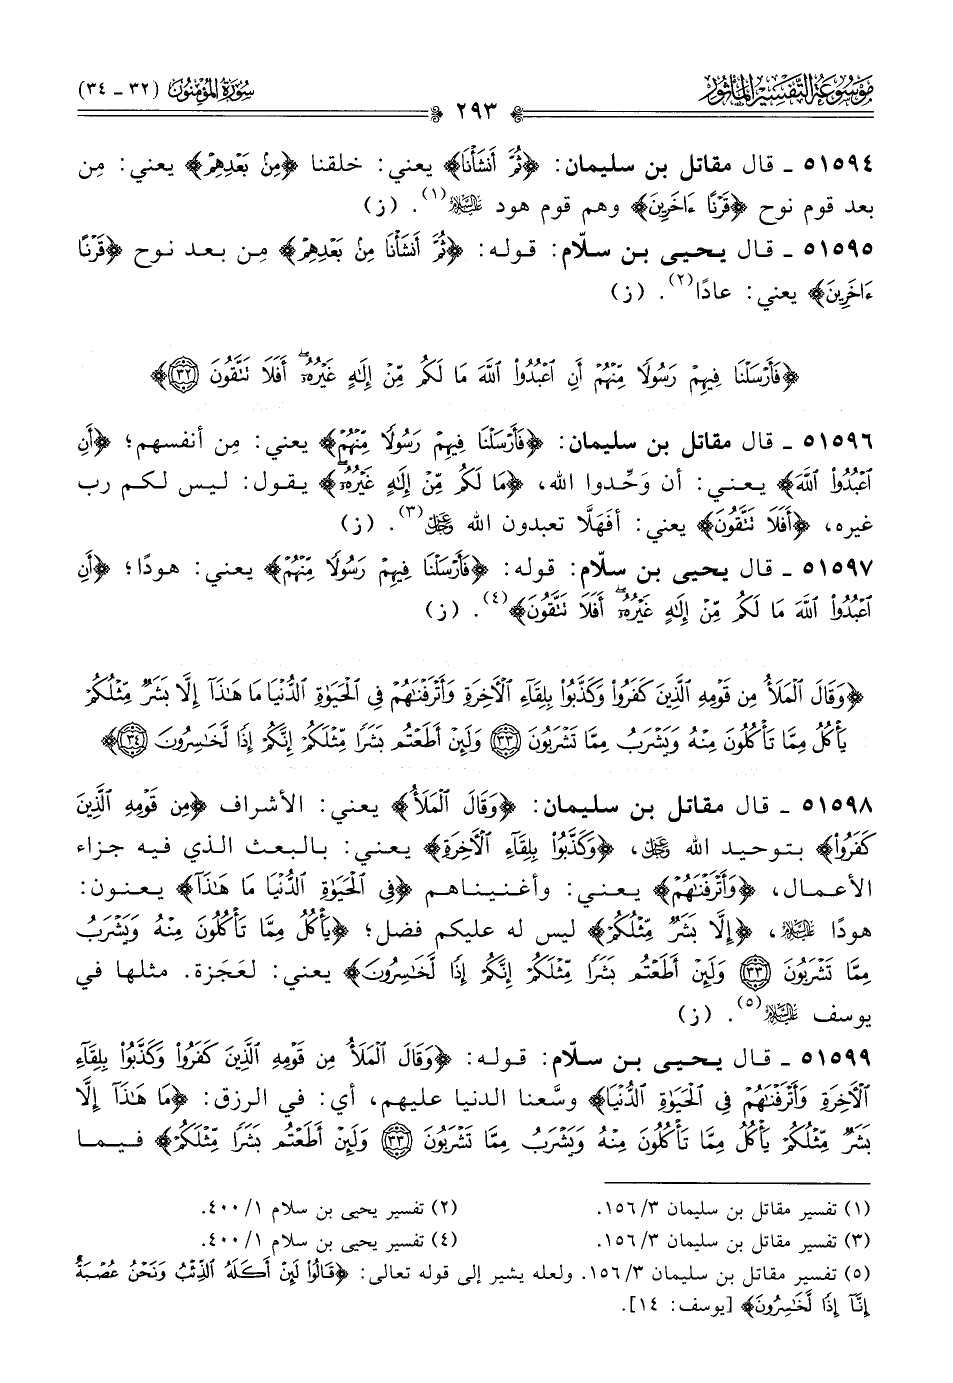 مَوْسُوعَة التَّفْسِيْرِ المَأْثُور
سُورَةُ المُؤْمِنُون (٣٢ - ٣٤)
٢٩٣
٥١٥٩٤ ـ قال مقاتل بن سليمان: ﴿ثُمَّ أَنشَأْنَا﴾ يعني: خلقنا ﴿مِنۢ بَعْدِهِمْ﴾ يعني: مِن
بعد قوم نوح ﴿قَرْنًا ءَاخَرِينَ﴾ وهم قوم هود عليه السلام(١). (ز)
٥١٥٩٥ ـ قال يحيى بن سلّام: قوله: ﴿ثُمَّ أَنشَأْنَا مِنۢ بَعْدِهِمْ﴾ مِن بعد نوح ﴿قَرْنًا
ءَاخَرِينَ﴾ يعني: عادًا(٢). (ز)
﴿فَأَرْسَلْنَا فِيهِمْ رَسُولًا مِّنْهُمْ أَنِ ٱعْبُدُوا۟ ٱللَّهَ مَا لَكُم مِّنْ إِلَٰهٍ غَيْرُهُۥٓ ۖ أَفَلَا تَتَّقُونَ ٣٢﴾
٥١٥٩٦ ـ قال مقاتل بن سليمان: ﴿فَأَرْسَلْنَا فِيهِمْ رَسُولًا مِّنْهُمْ﴾ يعني: مِن أنفسهم؛ ﴿أَنِ
ٱعْبُدُوا۟ ٱللَّهَ﴾ يعني: أن وَحِّدوا الله، ﴿مَا لَكُم مِّنْ إِلَٰهٍ غَيْرُهُۥٓ﴾ يقول: ليس لكم رب
غيره، ﴿أَفَلَا تَتَّقُونَ﴾ يعني: أفهَلَّا تعبدون الله عز وجل(٣). (ز)
٥١٥٩٧ ـ قال يحيى بن سلّام: قوله: ﴿فَأَرْسَلْنَا فِيهِمْ رَسُولًا مِّنْهُمْ﴾ يعني: هودًا؛ ﴿أَنِ
ٱعْبُدُوا۟ ٱللَّهَ مَا لَكُم مِّنْ إِلَٰهٍ غَيْرُهُۥٓ ۖ أَفَلَا تَتَّقُونَ﴾(٤). (ز)
﴿وَقَالَ ٱلْمَلَأُ مِن قَوْمِهِ ٱلَّذِينَ كَفَرُوا۟ وَكَذَّبُوا۟ بِلِقَآءِ ٱلْـَٔاخِرَةِ وَأَتْرَفْنَٰهُمْ فِى ٱلْحَيَوٰةِ ٱلدُّنْيَا مَا هَٰذَآ إِلَّا بَشَرٌ مِّثْلُكُمْ
يَأْكُلُ مِمَّا تَأْكُلُونَ مِنْهُ وَيَشْرَبُ مِمَّا تَشْرَبُونَ ٣٣ وَلَئِنْ أَطَعْتُم بَشَرًا مِّثْلَكُمْ إِنَّكُمْ إِذًا لَّخَٰسِرُونَ ٣٤﴾
٥١٥٩٨ ـ قال مقاتل بن سليمان: ﴿وَقَالَ ٱلْمَلَأُ﴾ يعني: الأشراف ﴿مِن قَوْمِهِ ٱلَّذِينَ
كَفَرُوا۟﴾ بتوحيد الله عز وجل، ﴿وَكَذَّبُوا۟ بِلِقَآءِ ٱلْـَٔاخِرَةِ﴾ يعني: بالبعث الذي فيه جزاء
الأعمال، ﴿وَأَتْرَفْنَٰهُمْ﴾ يعني: وأغنيناهم ﴿فِى ٱلْحَيَوٰةِ ٱلدُّنْيَا مَا هَٰذَآ﴾ يعنون:
هودًا عليه السلام، ﴿إِلَّا بَشَرٌ مِّثْلُكُمْ﴾ ليس له عليكم فضل؛ ﴿يَأْكُلُ مِمَّا تَأْكُلُونَ مِنْهُ وَيَشْرَبُ
مِمَّا تَشْرَبُونَ ٣٣ وَلَئِنْ أَطَعْتُم بَشَرًا مِّثْلَكُمْ إِنَّكُمْ إِذًا لَّخَٰسِرُونَ﴾ يعني: لعَجَزة. مثلها في
يوسف عليه السلام(٥). (ز)
٥١٥٩٩ ـ قال يحيى بن سلّام: قوله: ﴿وَقَالَ ٱلْمَلَأُ مِن قَوْمِهِ ٱلَّذِينَ كَفَرُوا۟ وَكَذَّبُوا۟ بِلِقَآءِ
ٱلْـَٔاخِرَةِ وَأَتْرَفْنَٰهُمْ فِى ٱلْحَيَوٰةِ ٱلدُّنْيَا﴾ وسَّعنا الدنيا عليهم، أي: في الرزق: ﴿مَا هَٰذَآ إِلَّا
بَشَرٌ مِّثْلُكُمْ يَأْكُلُ مِمَّا تَأْكُلُونَ مِنْهُ وَيَشْرَبُ مِمَّا تَشْرَبُونَ ٣٣ وَلَئِنْ أَطَعْتُم بَشَرًا مِّثْلَكُمْ﴾ فيما
(١) تفسير مقاتل بن سليمان ٣/ ١٥٦.
(٢) تفسير يحيى بن سلام ١/ ٤٠٠.
(٣) تفسير مقاتل بن سليمان ٣/ ١٥٦.
(٤) تفسير يحيى بن سلام ١/ ٤٠٠.
(٥) تفسير مقاتل بن سليمان ٣/ ١٥٦. ولعله يشير إلى قوله تعالى: ﴿قَالُوا۟ لَئِنْ أَكَلَهُ ٱلذِّئْبُ وَنَحْنُ عُصْبَةٌ
إِنَّآ إِذًا لَّخَٰسِرُونَ﴾ [يوسف: ١٤].